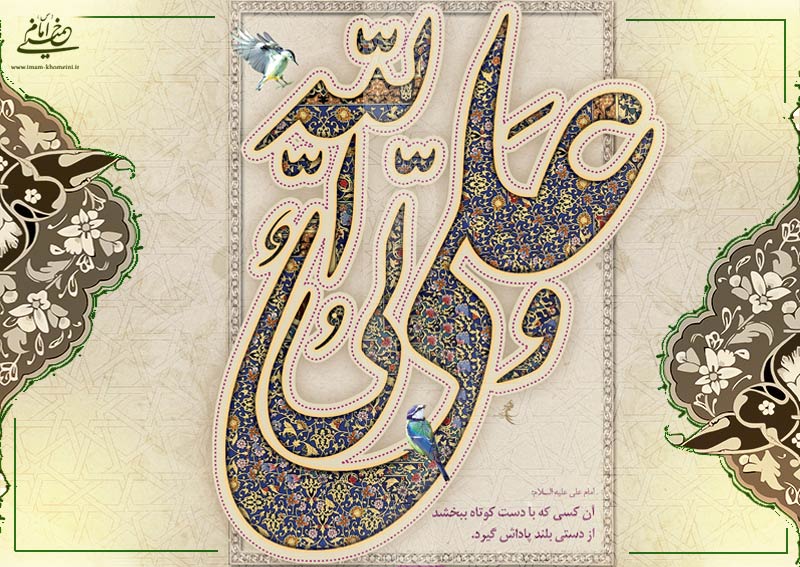 امام خمینی
www.imam-khomeini.ir
علی ولی الله
امام علی علیه السلام:
آن کسی که با دست کوتاه ببخشد
از دستی بلند پاداش گیرد.